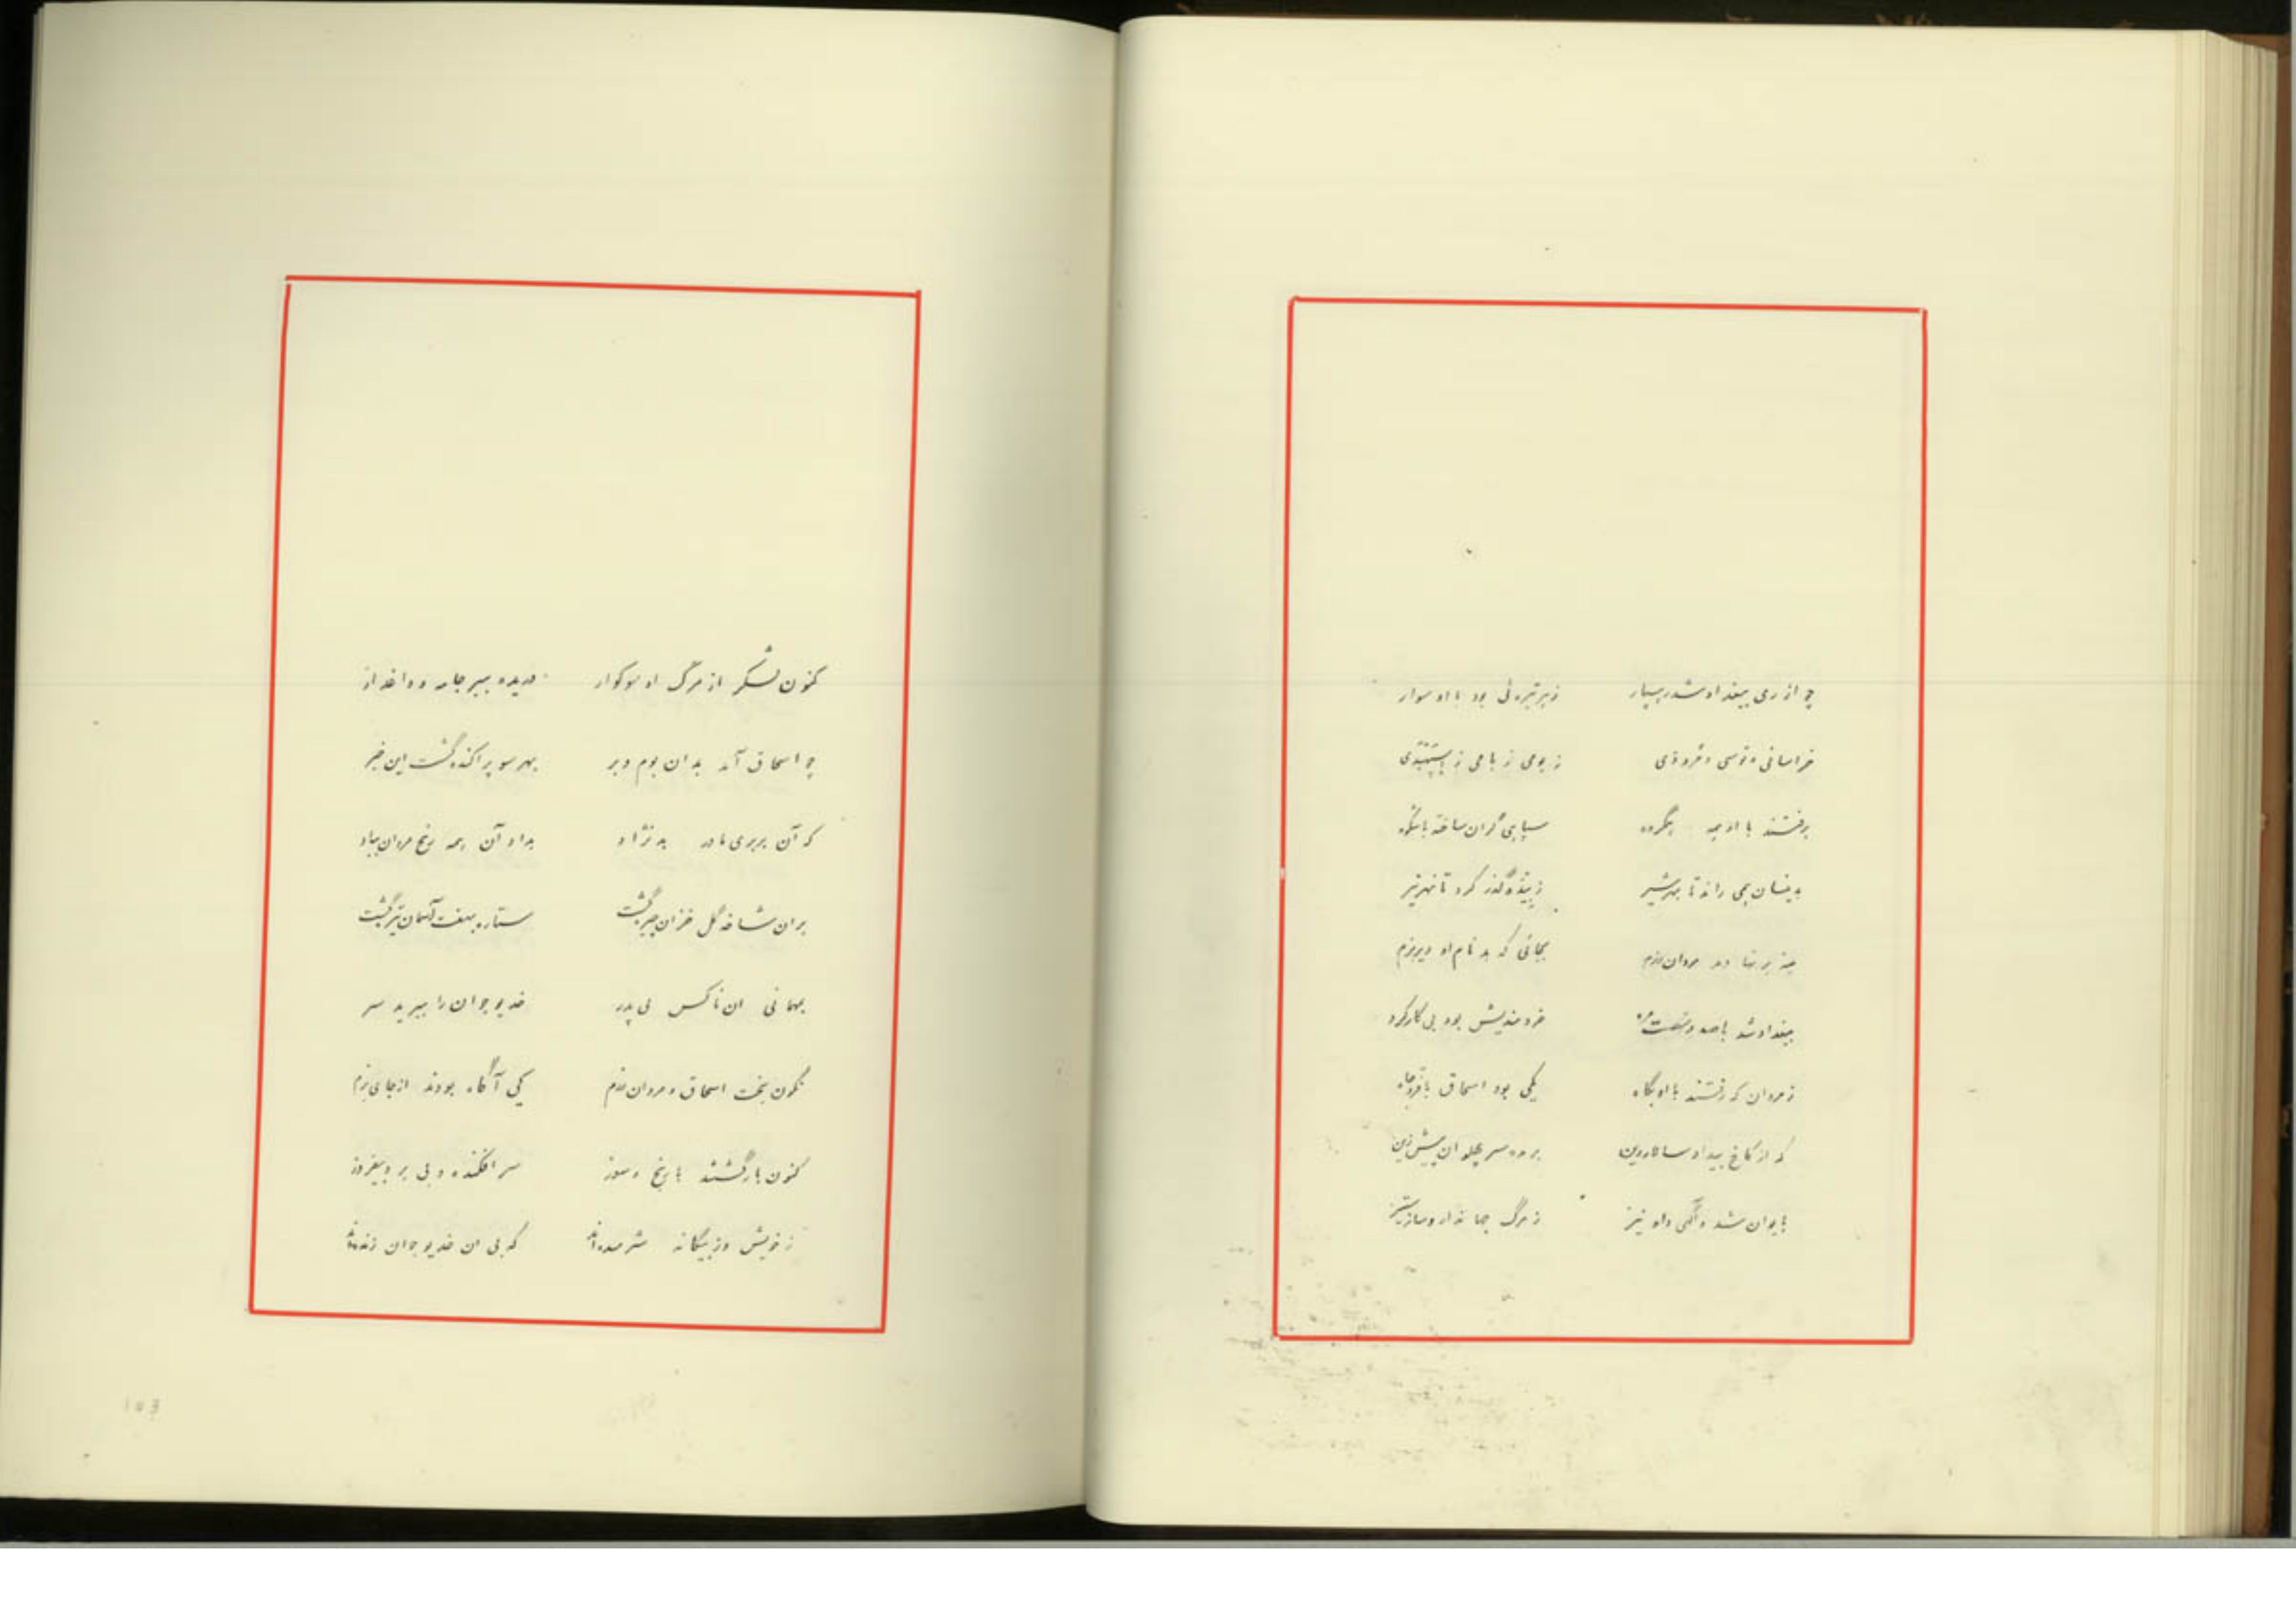 چو از ری ببغداد شد رهسپار ز هر تیره ئی بود با او سوار
خراسانی و توسی و مروزی ز بومی ز بامی ز
برفتند با او همه همگروه سپاهی گران ساخته باشکوه
بدینسان همی راند تا بهرشیر گذر کرد تا نهرتیر
بجائی که بد نام او دیر بزم
ببغداد شد باصد و شصت مرد خردمندیش بود بی کارکرد
ز مردان که رفتند با او بگاه یکی بود اسحاق با فر و جاه
که از کاخ بیداد سالار دین بر مرد سر پهلوان پیش زین
بایوان شد و آگهی داد نیز ز مرگ جهاندار و ساز ستیز
کنون لشکر از مرگ او سوکوار دریده ببر جامه و داغدار
چو اسحاق آمد بدان بوم و بر بهر سو پراکنده گشت این خبر
که آن بربری مادر بد نژاد بداد آن همه رنج مردان بباد
بران شاخه گل خزان چیر گشت ستاره بهفت آسمان تیر گشت
بمهانی آن ناکس بی پدر خدیو جوان را ببرید سر
نگون بخت اسحاق و مردان رزم کی آگاه بودند از جای بزم
کنون بازگشتند با رنج و سوز سر افکنده و بی بر و بیفروز
ز خویش و ز بیگانه شرمنده‌اند که بی آن خدیو جوان زنده‌اند
103